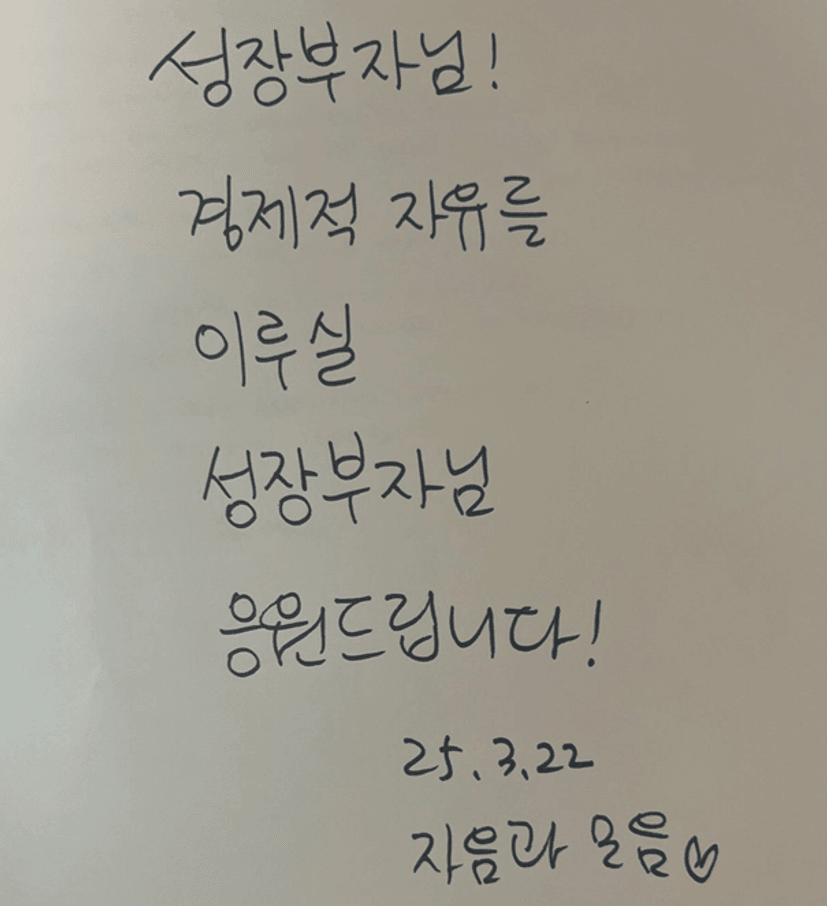 성장부자님!
경제적 자유를
이루실
성장부자님
응원드립니다!
25.3.22
자음과 모음♡